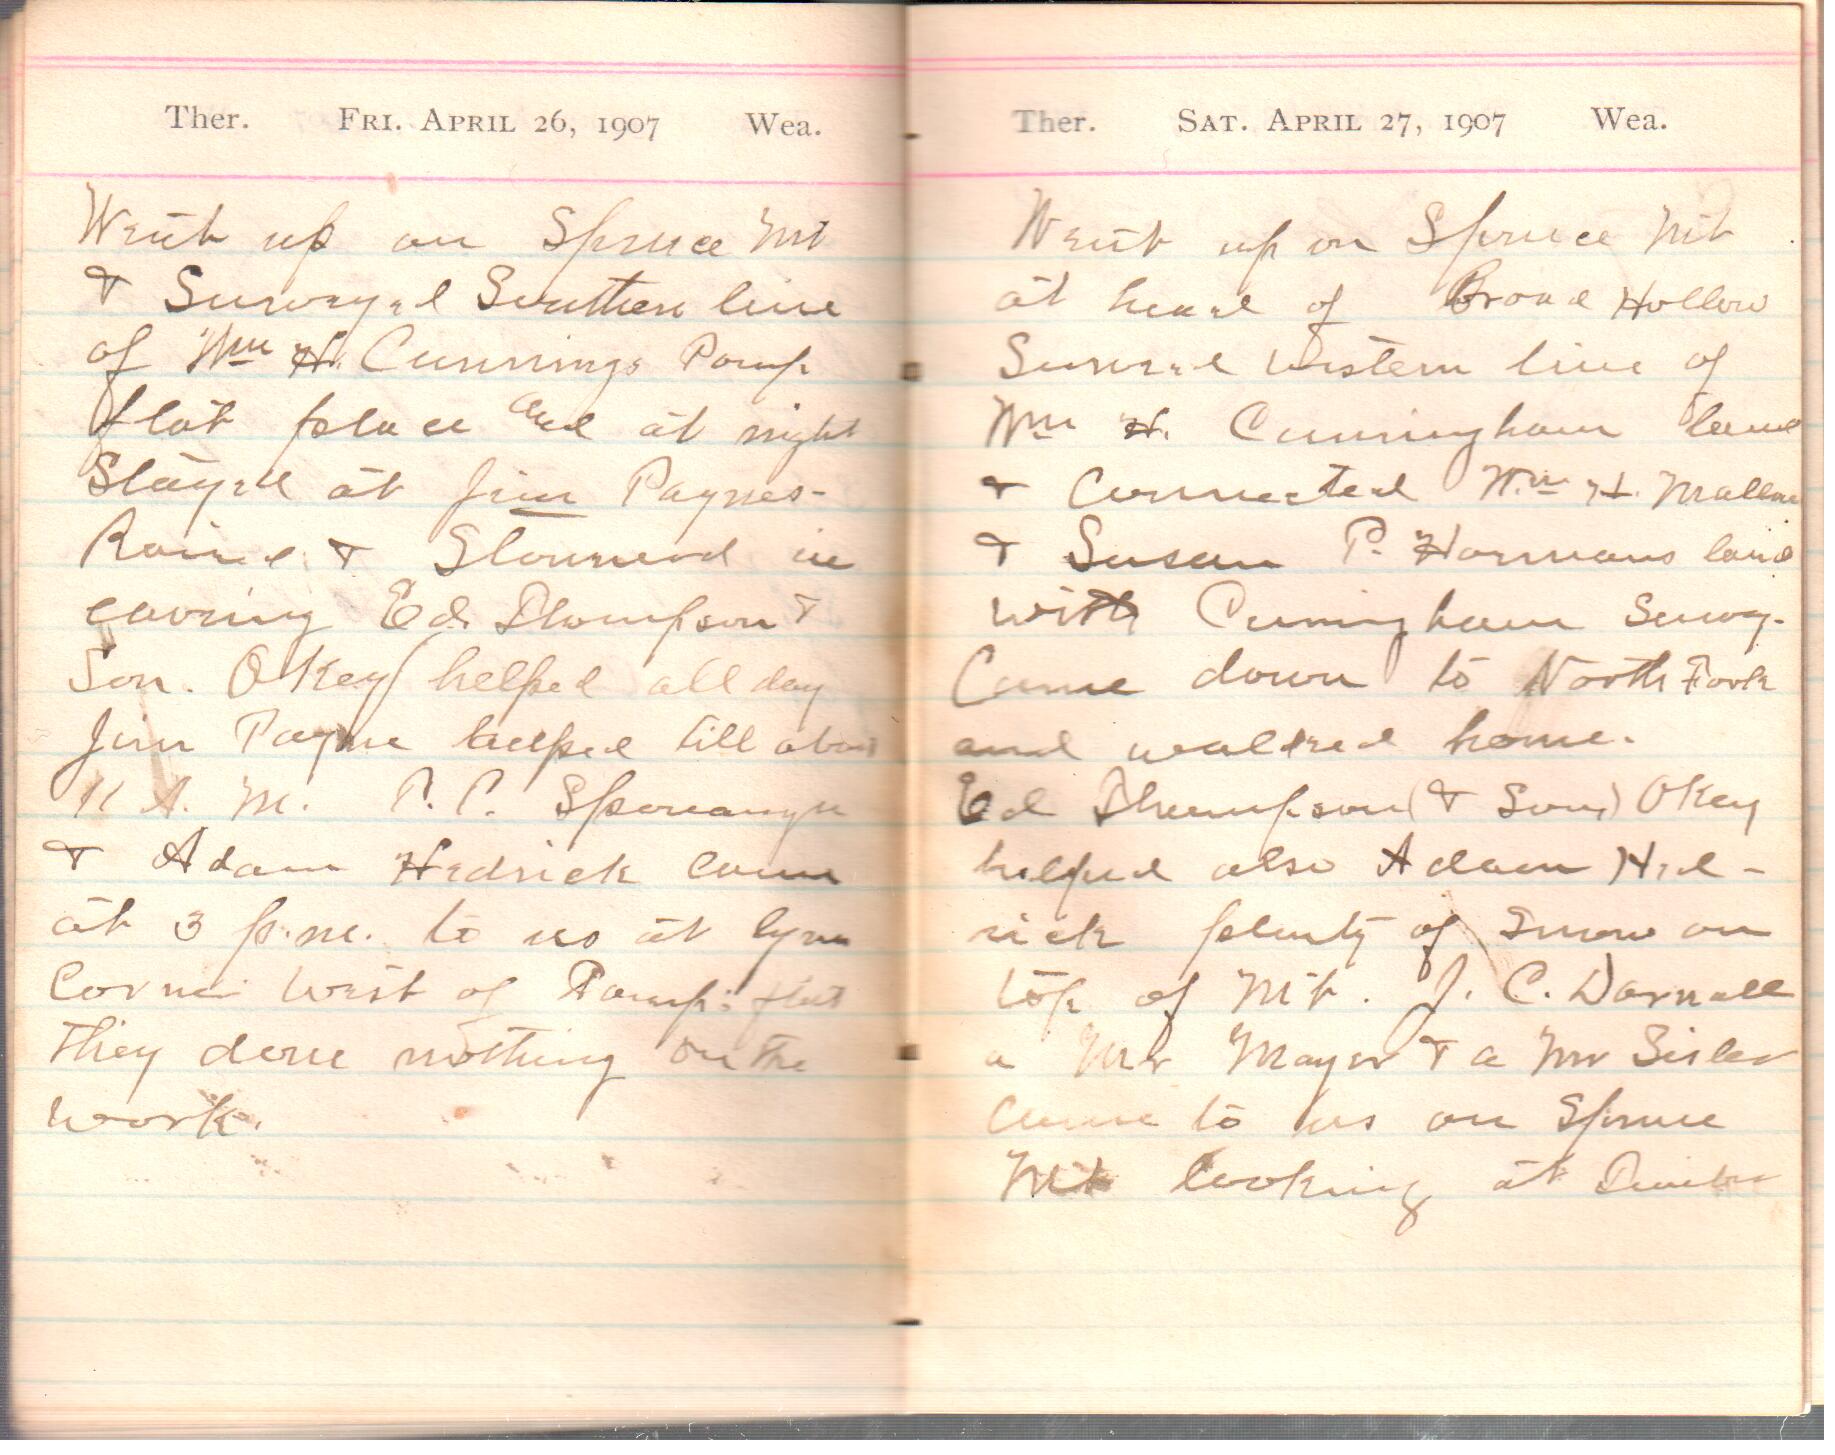 Ther. FRI. APRIL 26, 1907 Wea.
Went up on Spruce Mt
& Surveyed Southern line
of Wm H. Cunnings Pomp
flat place and at night
Stayed at Jim Paynes-
Rained & Stormed in
evening Ed. Thompson &
Son. Okey helped all day
Jim Payne helped till about
11 A. M. P. P.
& Adam Hedrick came
at 3 p.m. to us at lynn
Corner West of Pomps flat
They done nothing on the
work.
Ther. SAT. APRIL 27, 1907 Wea.
Went up on Spruce Mt
at head of Broad Hollow
Surved Western line of
Wm H. Cunningham land
& Connected Wm H. Mallow
& Susan P. Harmans land
with Cuningham Survey.
Came down to North Fork
and walked home.
Ed Thompson (& Son) Okey
helped also Adam Hed-
rick plenty of Snow on
top of Mt. J. C. Darnall
a Mr Mayer & a Mr Sisler
came to us on Spruce
Mt looking at Timber